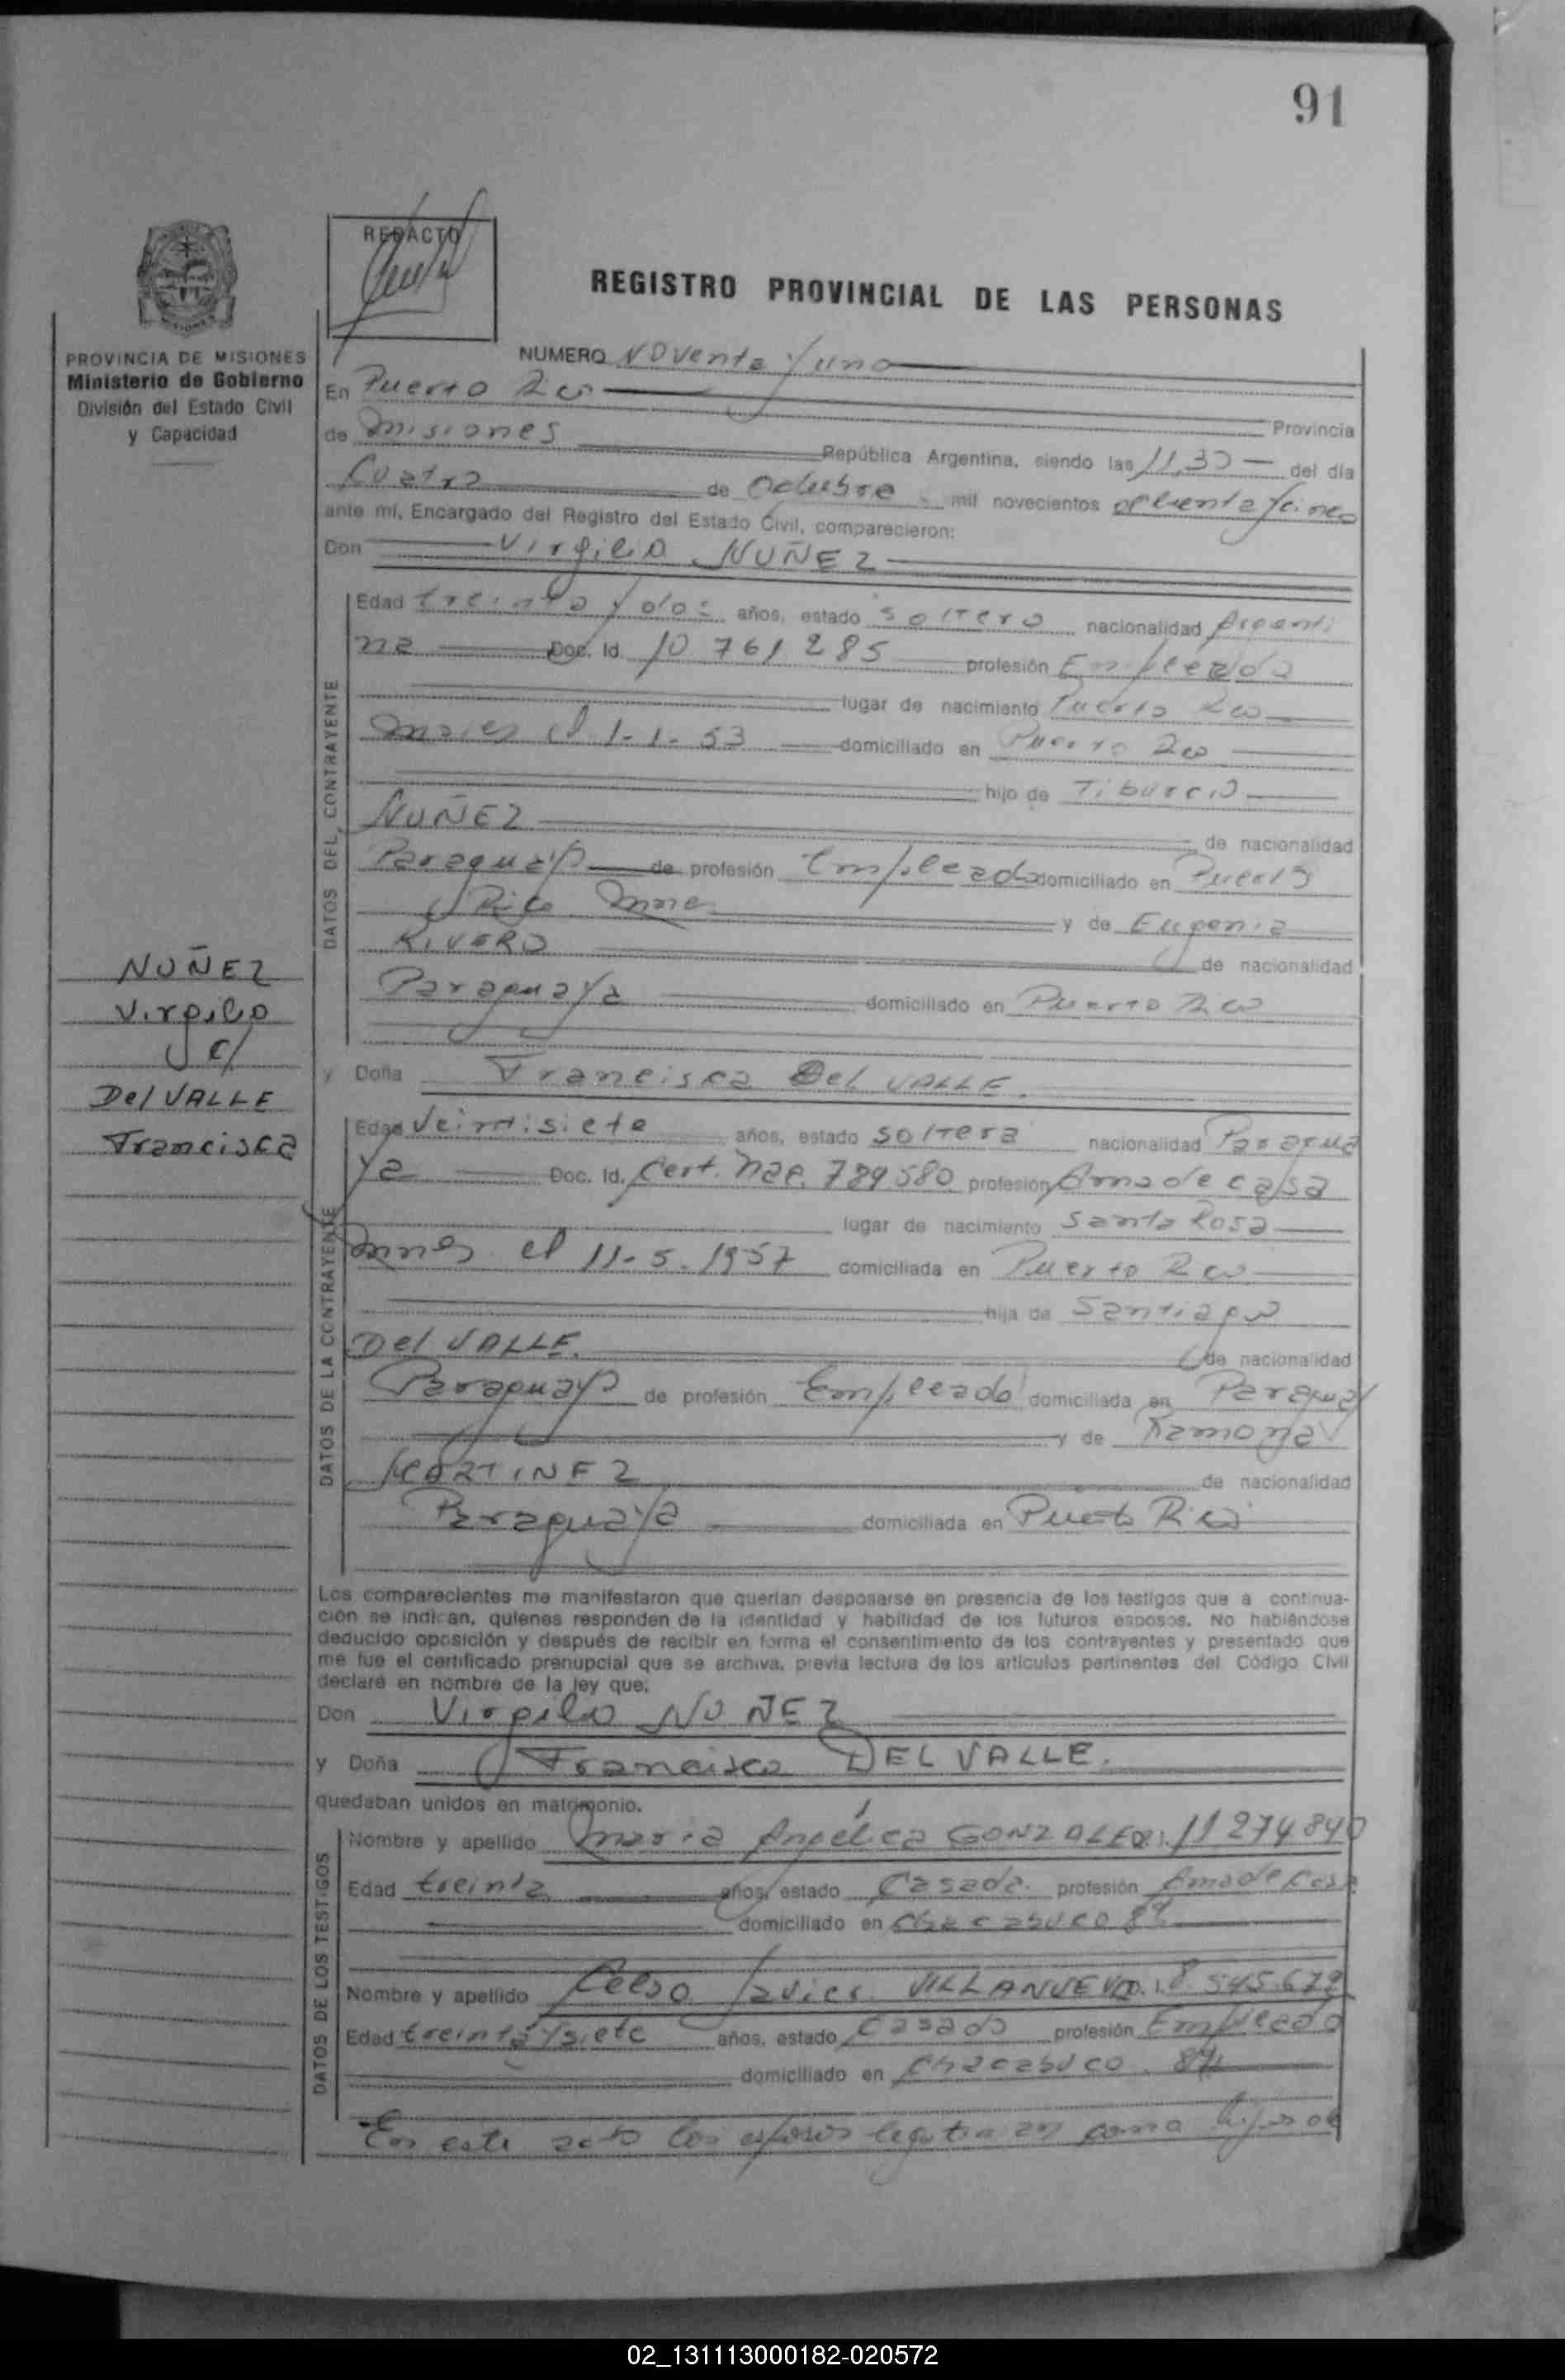 91
REDACTO
REGISTRO PROVINCIAL DE LAS PERSONAS
PROVINCIA DE MISIONES
Ministerio de Gobierno
División del Estado Civil
y Capacidad
NUMERO Noventa y uno
En Puerto Rico
Provincia
de Misiones República Argentina, siendo las 11,30 del día
Cuatro de Octubre mil novecientos ochenta y cinco
ante mí, Encargado del Registro del Estado Civil, comparecieron:
Don Virgilio NUÑEZ
DATOS DEL CONTRAYENTE
Edad treinta y dos años, estado soltero nacionalidad Argenti
na Doc. Id. 10 761 285 profesión Empleado
lugar de nacimiento Puerto Rico
el 1-1-53 domiciliado en Puerto Rico
hijo de Tiburcio
NUÑEZ de nacionalidad
Paraguayo de profesión Empleado domiciliado en Puerto
Rico y de Eugenia
RIVERO de nacionalidad
Paraguaya domiciliado en Puerto Rico
NUÑEZ
Virgilio
c/
Del VALLE
Francisca
y Doña Francisca Del VALLE.
DATOS DE LA CONTRAYENTE
Edad Veintisiete años, estado soltera nacionalidad Paragua
ya Doc. Id. Cert. Nac. 789 580 profesión Ama de casa
lugar de nacimiento Santa Rosa
el 11-5-1957 domiciliada en Puerto Rico
hija de Santiago
Del VALLE. de nacionalidad
Paraguayo de profesión Empleado domiciliada en Paraguay
y de Ramona
MARTINEZ de nacionalidad
Paraguaya domiciliada en Puerto Rico
Los comparecientes me manifestaron que querían desposarse en presencia de los testigos que a continua-
ción se indican, quienes responden de la identidad y habilidad de los futuros esposos. No habiéndose
deducido oposición y después de recibir en forma el consentimiento de los contrayentes y presentado que
me fue el certificado prenupcial que se archiva, previa lectura de los artículos pertinentes del Código Civil
declaré en nombre de la ley que:
Don Virgilio NUÑEZ
y Doña Francisca DEL VALLE.
quedaban unidos en matrimonio.
DATOS DE LOS TESTIGOS
Nombre y apellido María Angélica GONZALEZ D.I. 11 274 840
Edad treinta años, estado Casada. profesión Ama de Casa
domiciliado en Chacabuco 87
Nombre y apellido Celso Javier VILLANUEVA D.I. 8.545.672
Edad treinta y siete años, estado Casado profesión Empleado
domiciliado en Chacabuco 87
En este acto los esposos legitiman como hijos de
02_131113000182-020572